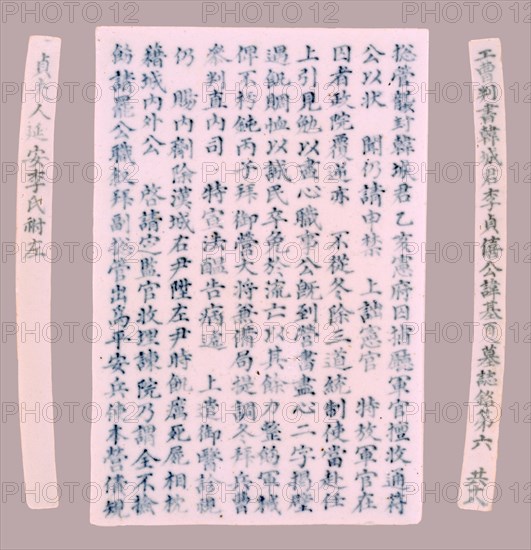 工曹判書韓城君李貞僖公諱基夏墓誌銘第六 共十
摠管散封韓城君乙亥憲府因捕廳軍官擅收通符
公以狀 聞仍請申禁 上詘憲官 特放軍官在
囚者政院覆逆亦 不從冬除三道統制使當赴任
上引見勉以盡心職事公旣到營書盡心二字揭壁
過飢賙恤以誠民幸免於流亡以其餘力整飭軍械
俾不朽鈍丙子拜御營大將兼備局提調冬拜兵曹
參判直內司 特宣法醞告病遞 上遣御醫診視
仍 賜內劑除漢城右尹陞左尹時飢癘死屍相枕
藉城內外公 啓請定監官收埋諫院乃謂全不掩
飭請罷公職敍拜副摠管出爲平安兵使本營
貞夫人延安李氏祔左
alamy